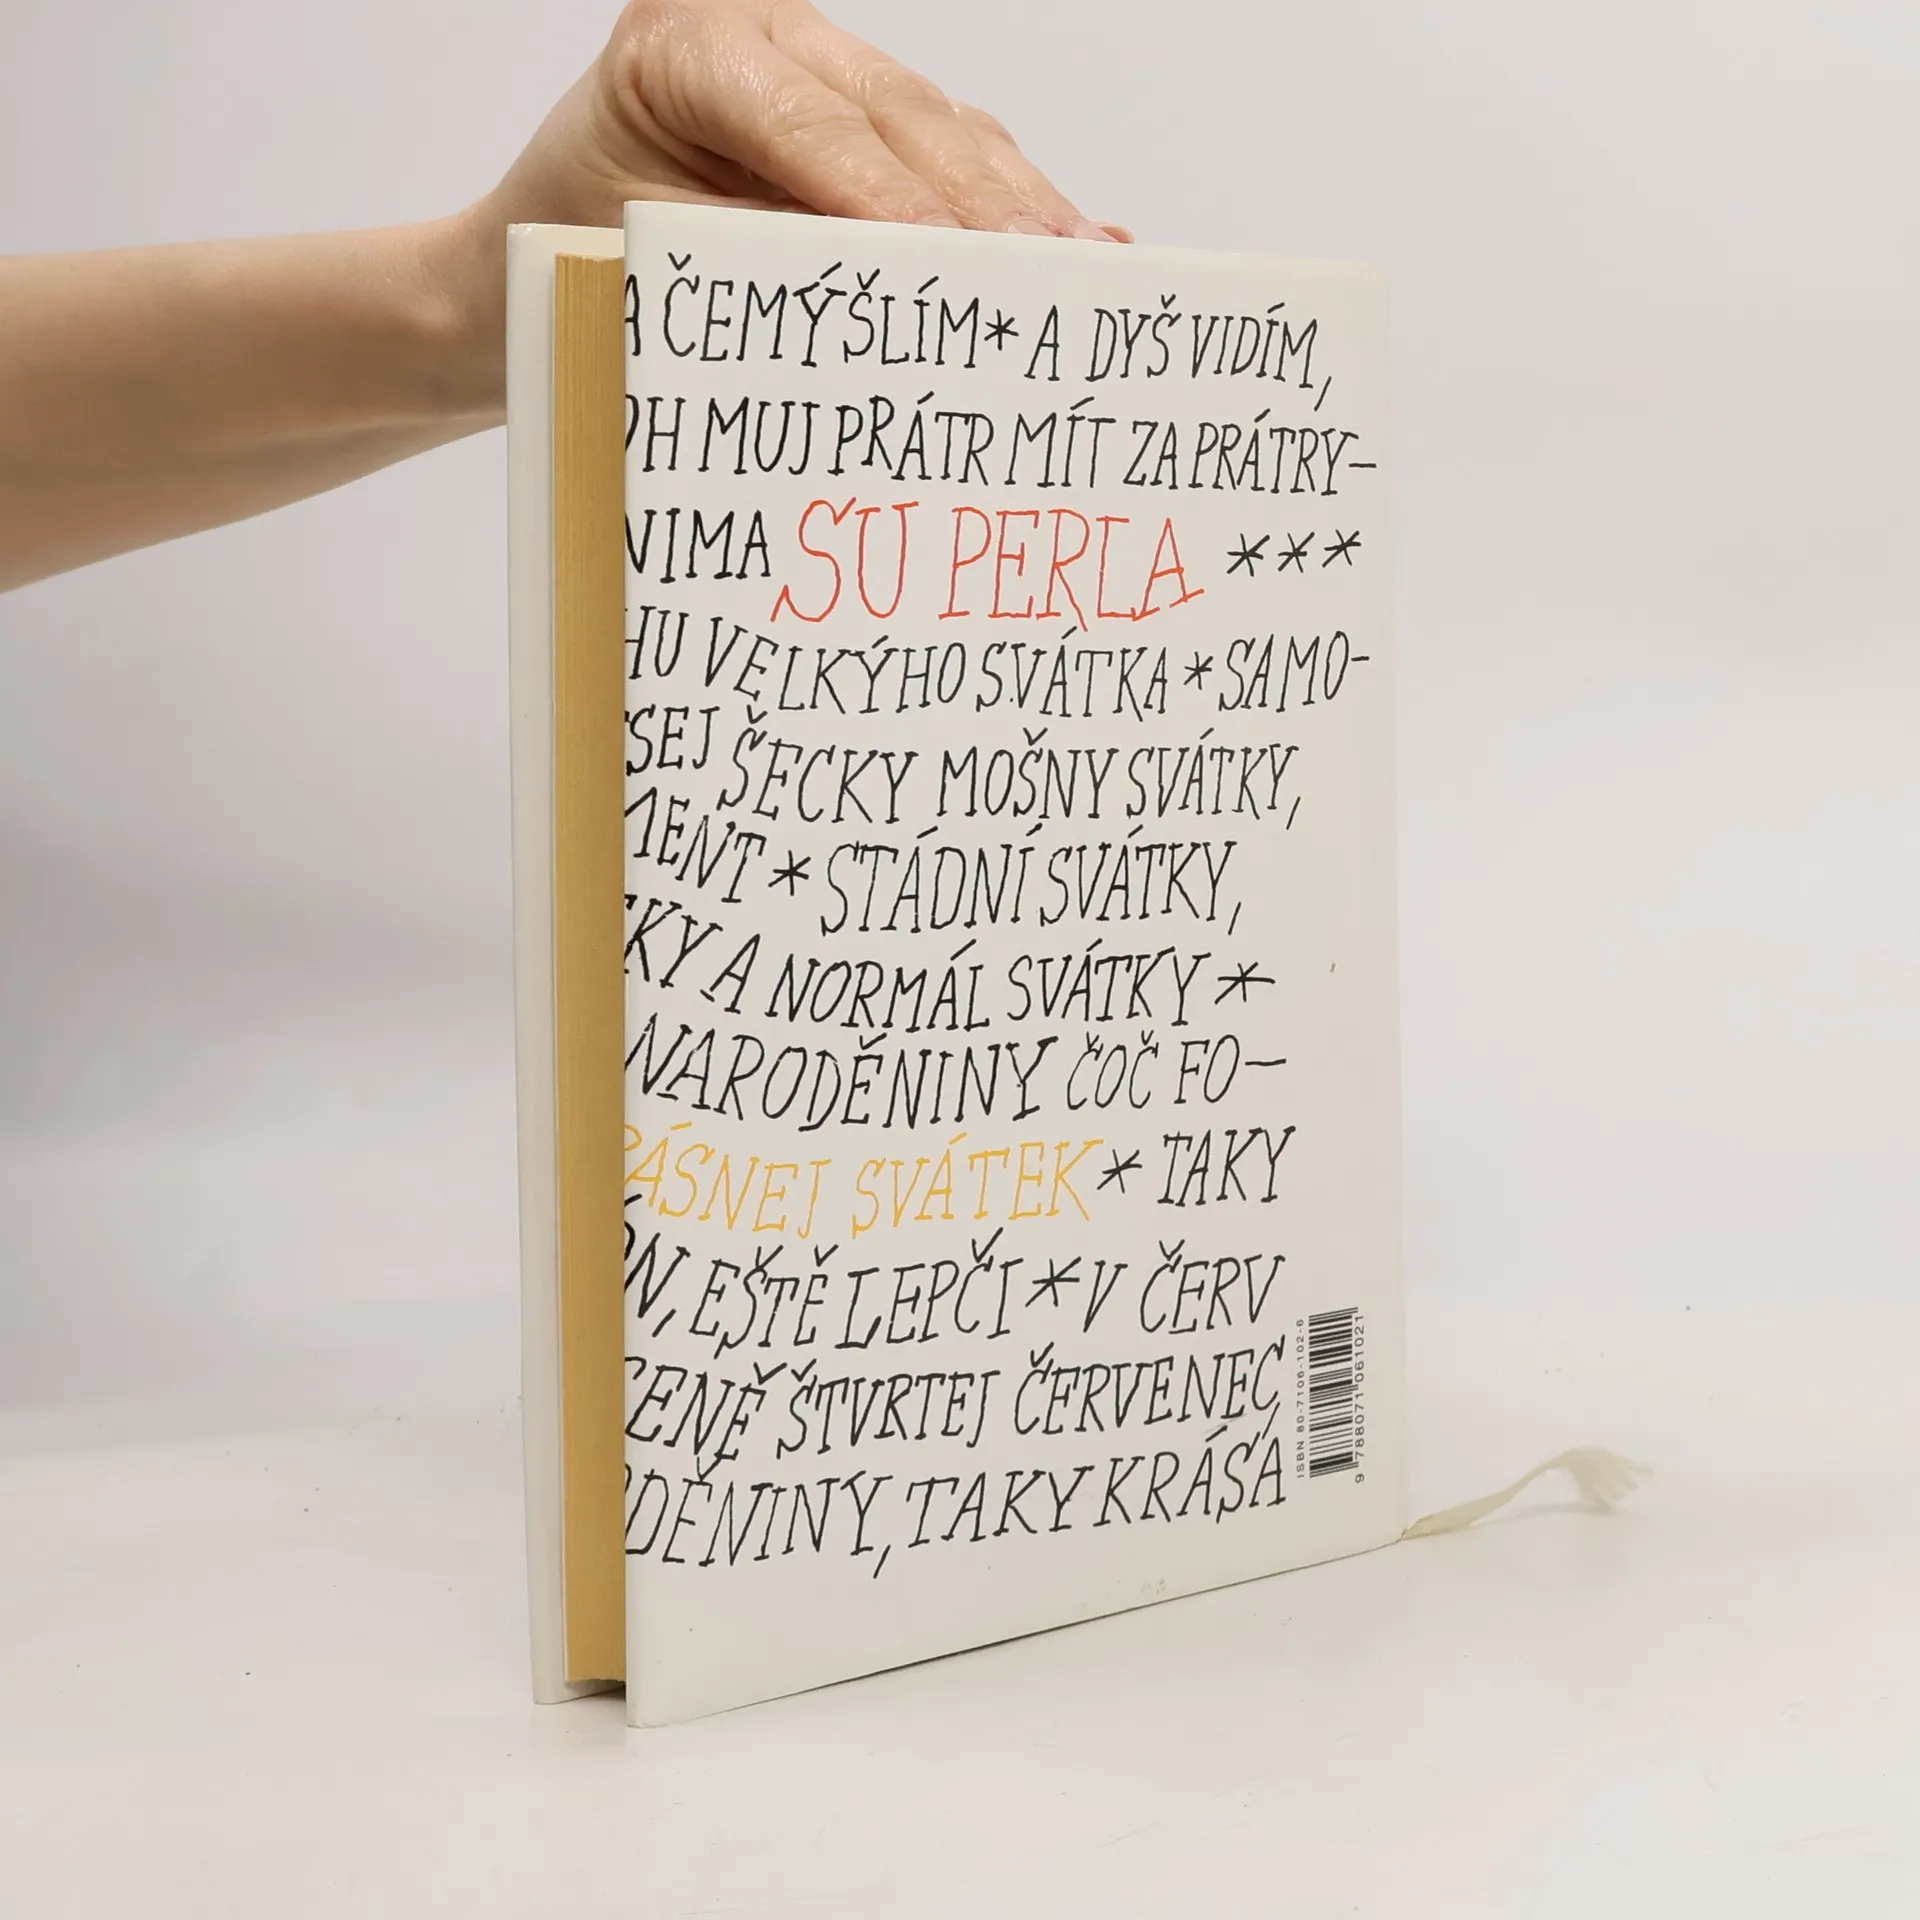 A ČEMÝŠLÍM * A DYŠ VIDÍM,
OH MUJ PRÁTR MÍT ZA PRÁTRY-
NIMA SU PERLA ***
HU VELKÝHO SVÁTKA * SAMO-
SEJ ŠECKY MOŠNY SVÁTKY,
MENT * STÁDNÍ SVÁTKY,
KY A NORMÁL SVÁTKY *
NARODĚNINY ČOČ FO-
RÁSNEJ SVÁTEK * TAKY
ÓN, EŠTĚ LEPČI * V ČERV
CENĚ ŠTVRTEJ ČERVENEC,
DĚNINY, TAKY KRÁSÁ
ISBN 80-7106-102-6
9 788071 061021